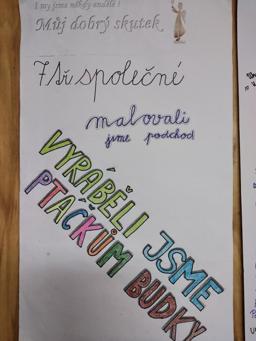 I my jsme někdy andělé!
Můj dobrý skutek
společné
malovali
jsme podchod
VYRÁBĚLI JSME
PTÁČKŮM BUDKY